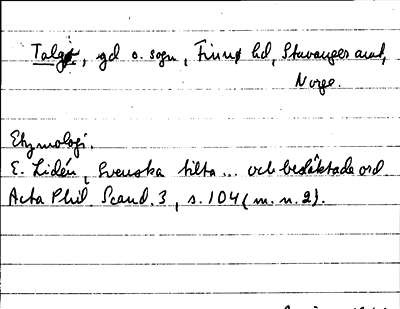 Talgø, gd o. sogn, Finnø hd, Stavanger amt,
Norge.
Etymologi.
E. Lidén, Svenska tilta... och besläktade ord.
Acta Phil. Scand. 3, s. 104 (m. n. 2).